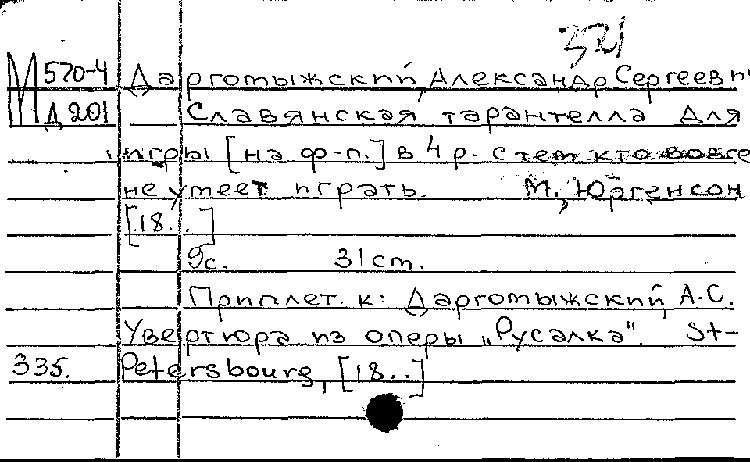 321
М 570-4 Даргомыжский, Александр Сергеевич
Д 201 Славянская тарантелла для
игры [на ф-п.] в 4 р. с тем кто вовсе
не умеет играть. М., Юргенсон
[18..]
9с. 31 cm.
Приплет. к: Даргомыжский, А.С.
Увертюра из оперы „Русалка". St-
335. Petersbourg, [18..]